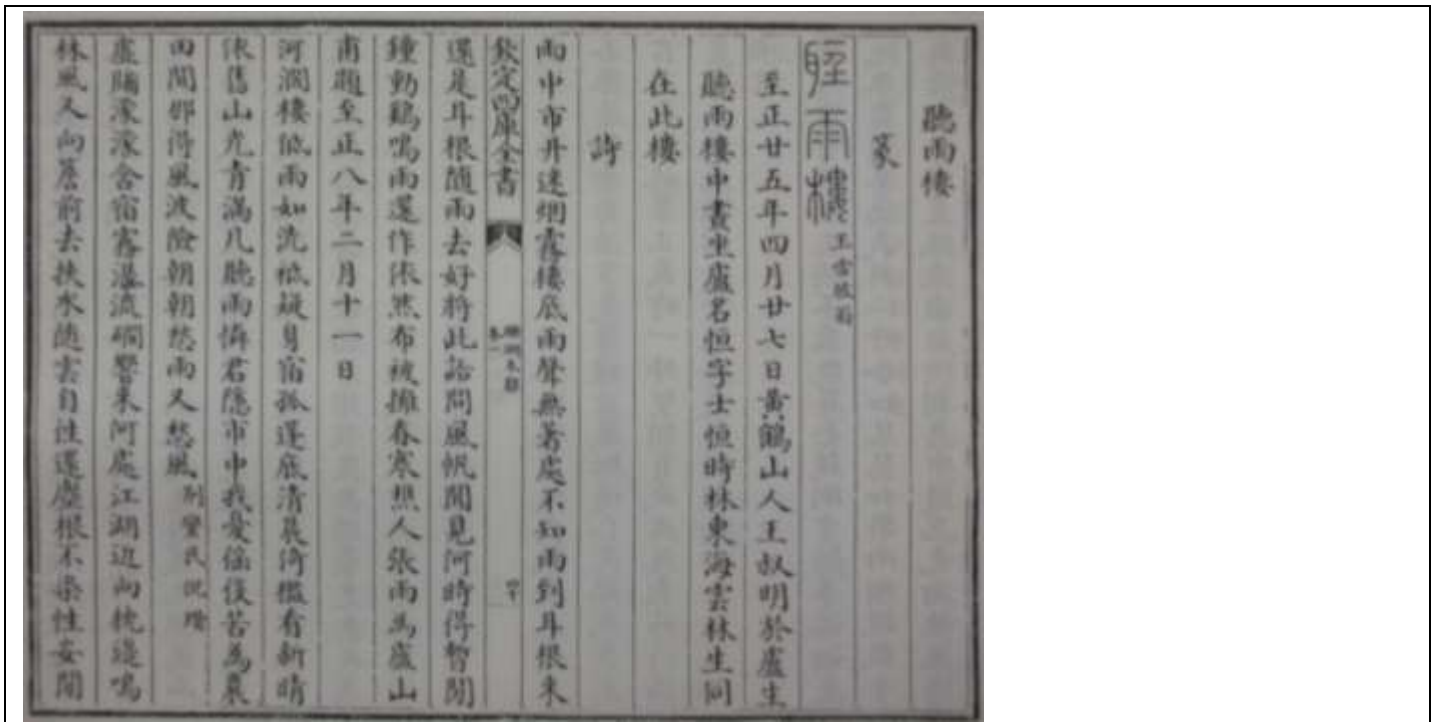 聽雨樓
篆
聽雨樓
王雲浪篆
至正廿五年四月廿七日黃鶴山人王叔明於盧生
聽雨樓中畫生盧名恒字士恒時林東海雲林生同
在此樓
詩
雨中市井迷烟霧樓底雨聲無著處不知雨到耳根來
欽定四庫全書
卷一
四十
還是耳根隨雨去好將此話問風帆聞見何時得暫閒
鐘動鷄鳴雨還作依然布被擁春寒想人張雨為盧山
甫題至正八年二月十一日
河濶樓低雨如洗祇疑身宿孤蓬底清晨倚檻看新晴
依舊山光青滿几聽雨憐君隱市中我憂徭役苦為農
田間那得風波險朝朝愁雨又愁風
倪瓚
盧彌濛濛含宿霧濕流磵響來何處江湖迢向枕邊鳴
林風又向簷前去挾水隨雲自性還塵根不染性妄閒